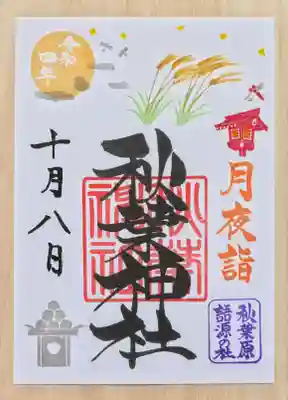 月夜詣
秋葉原
語源の社
秋葉神社
令和
四年
十月八日